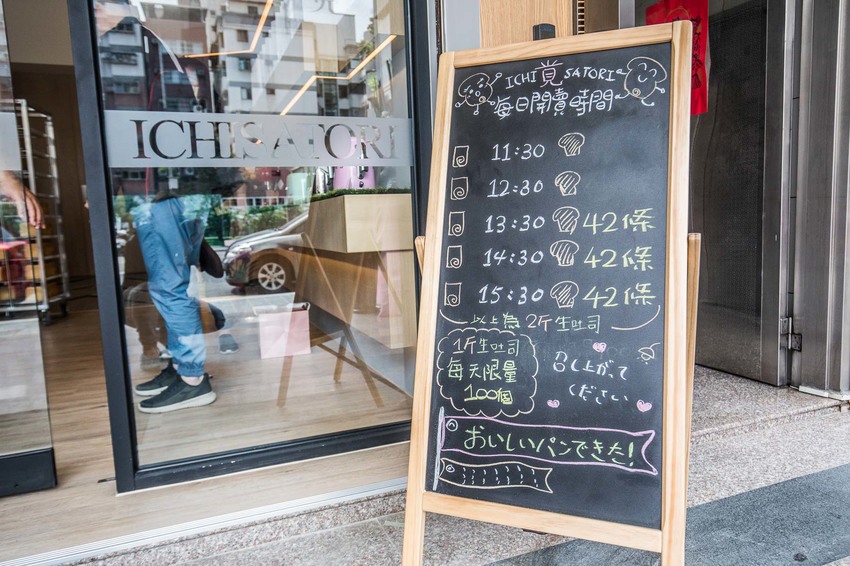 ICHISATORI
ICHI覚SATORI
每日開賣時間
11:30
12:30
13:30 42條
14:30 42條
15:30 42條
以上為 2斤生吐司
1斤生吐司
每天限量
100個
召し上がって
ください
おいしいパンできた!